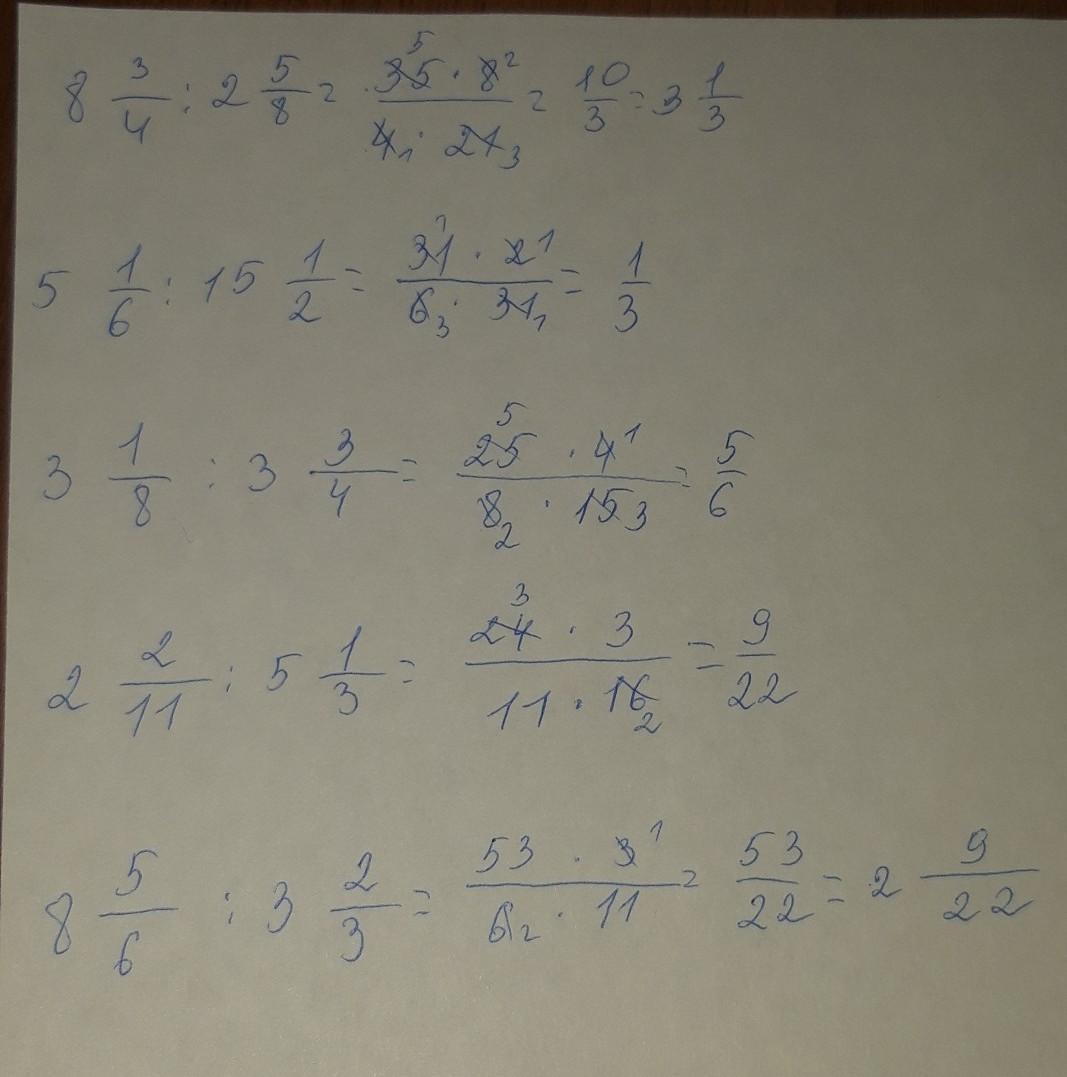 8 3/4 : 2 5/8 = 35 5 · 8 2 / 4 1 · 21 3 = 10/3 = 3 1/3
5 1/6 : 15 1/2 = 31 1 · 2 1 / 6 3 · 31 1 = 1/3
3 1/8 : 3 3/4 = 25 5 · 4 1 / 8 2 · 15 3 = 5/6
2 2/11 : 5 1/3 = 24 3 · 3 / 11 · 16 2 = 9/22
8 5/6 : 3 2/3 = 53 · 3 1 / 6 2 · 11 = 53/22 = 2 9/22